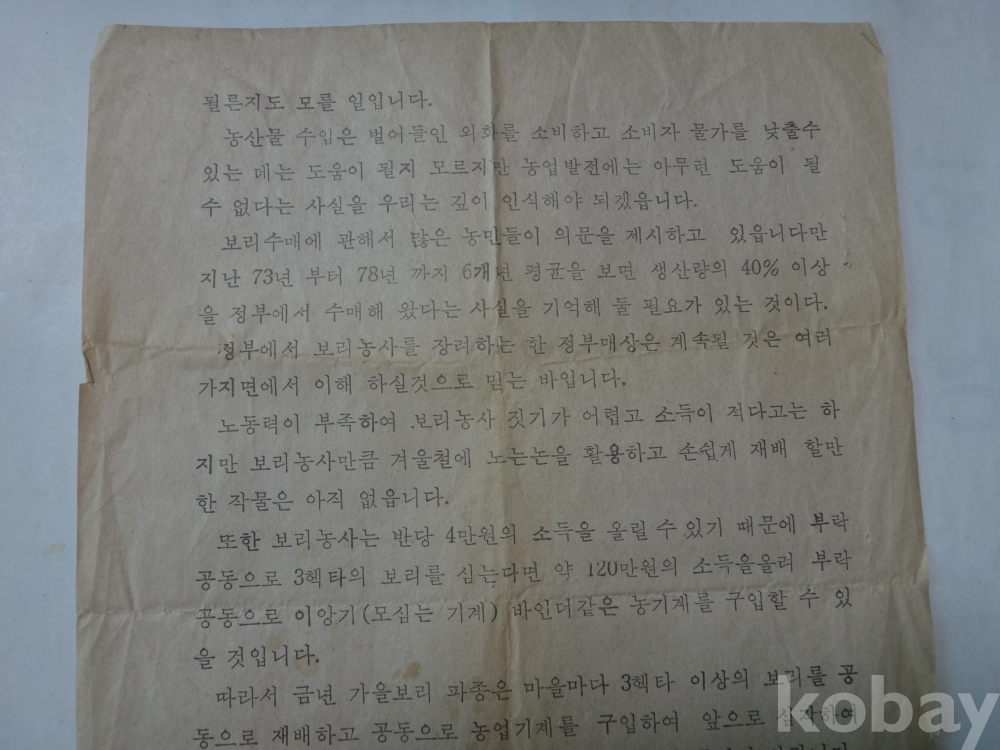 될른지도 모를 일입니다.
농산물 수입은 벌어들인 외화를 소비하고 소비자 물가를 낮출수
있는 데는 도움이 될지 모르지만 농업발전에는 아무런 도움이 될
수 없다는 사실을 우리는 깊이 인식해야 되겠읍니다.
보리수매에 관해서 많은 농민들이 의문을 제시하고 있읍니다만
지난 73년 부터 78년 까지 6개년 평균을 보면 생산량의 40% 이상
을 정부에서 수매해 왔다는 사실을 기억해 둘 필요가 있는 것이다.
정부에서 보리농사를 장려하는 한 정부매상은 계속될 것은 여러
가지면에서 이해 하실것으로 믿는 바입니다.
노동력이 부족하여 보리농사 짓기가 어렵고 소득이 적다고는 하
지만 보리농사만큼 겨울철에 노는논을 활용하고 손쉽게 재배 할만
한 작물은 아직 없읍니다.
또한 보리농사는 반당 4만원의 소득을 올릴 수 있기 때문에 부락
공동으로 3헥타의 보리를 심는다면 약 120만원의 소득을올려 부락
공동으로 이앙기(모심는 기계) 바인더같은 농기계를 구입할 수 있
을 것입니다.
따라서 금년 가을보리 파종은 마을마다 3헥타 이상의 보리를 공
동으로 재배하고 공동으로 농업기계를 구입하여 앞으로
kobay